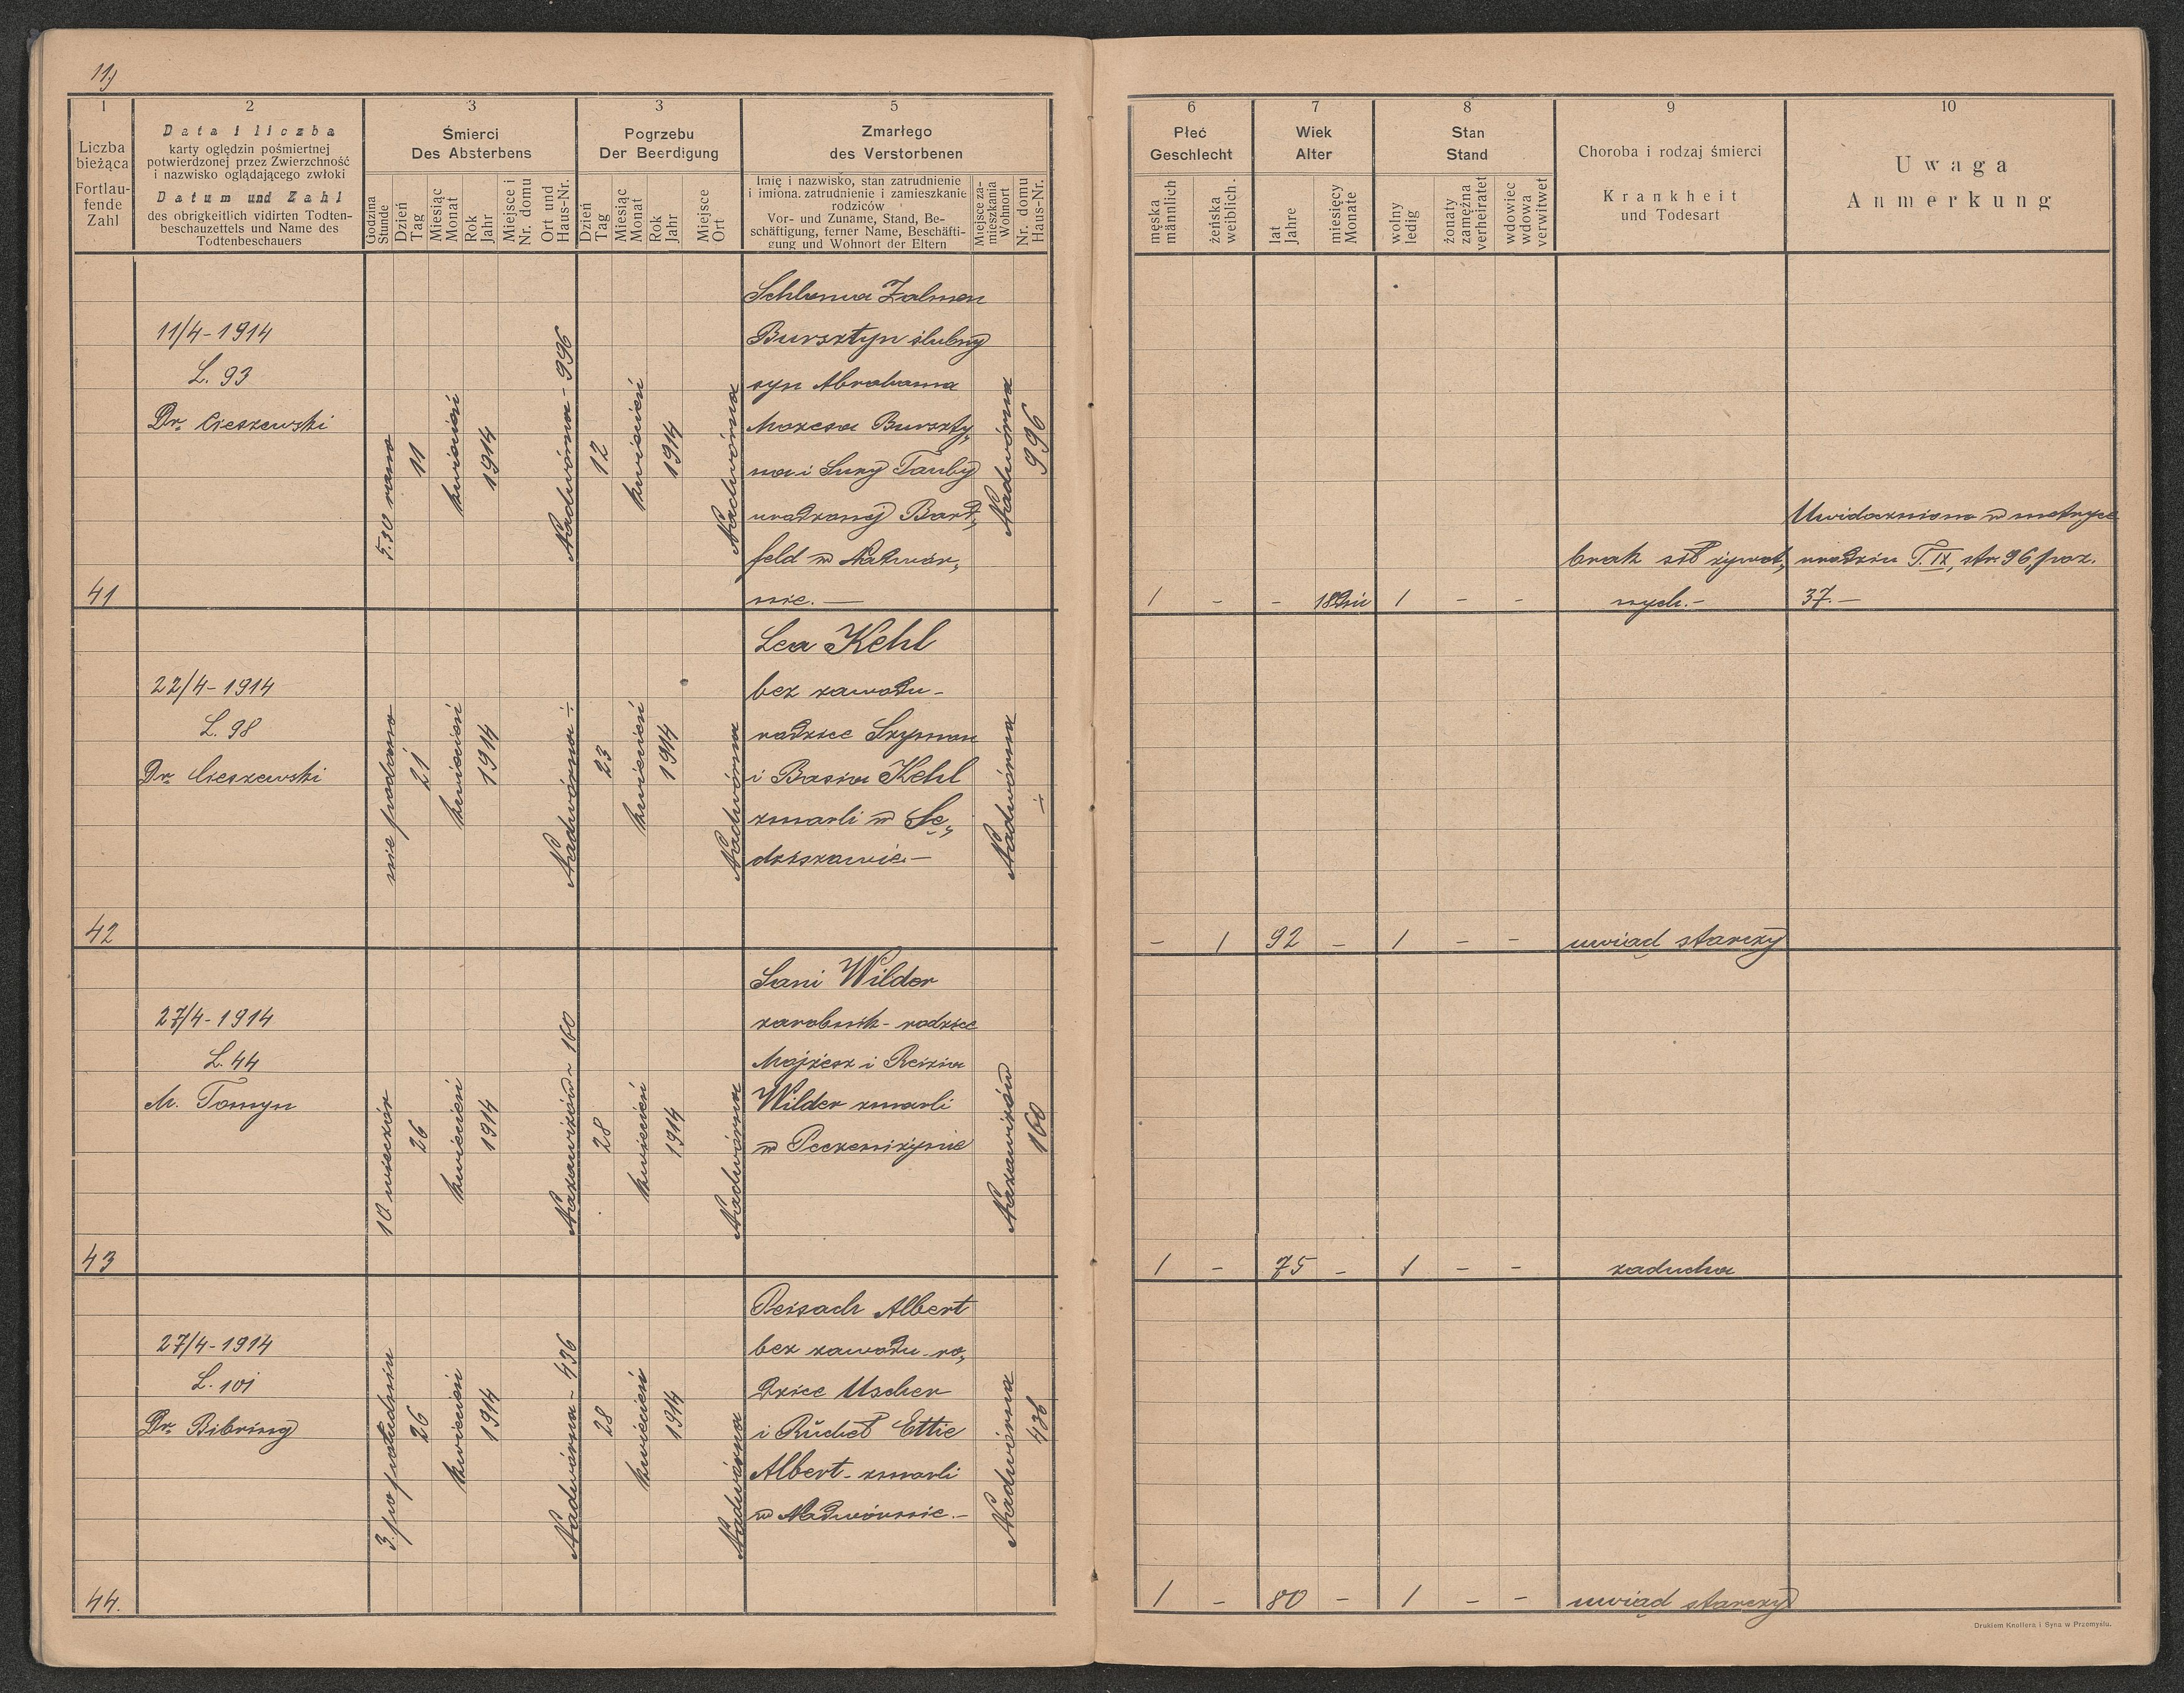 11)
1
2
3
3
5
Liczba
bieżąca
Fortlau-
fende
Zahl
Data i liczba
karty oględzin pośmiertnej
potwierdzonej przez Zwierzchność
i nazwisko oglądającego zwłoki
Datum und Zahl
des obrigkeitlich vidirten Todten-
beschauzettels und Name des
Todtenbeschauers
Śmierci
Des Absterbens
Godzina
Stunde
Dzień
Tag
Miesiąc
Monat
Rok
Jahr
Miejsce i
Nr. domu
Ort und
Haus-Nr.
Pogrzebu
Der Beerdigung
Dzień
Tag
Miesiąc
Monat
Rok
Jahr
Miejsce
Ort
Zmarłego
des Verstorbenen
Imię i nazwisko, stan zatrudnienie
i imiona, zatrudnienie i zamieszkanie
rodziców
Vor- und Zuname, Stand, Be-
schäftigung, ferner Name, Beschäfti-
gung und Wohnort der Eltern
Miejsce za-
mieszkania
Wohnort
Nr. domu
Haus-Nr.
6
7
8
9
10
Płeć
Geschlecht
męska
männlich
żeńska
weiblich.
Wiek
Alter
lat
Jahre
miesięcy
Monate
Stan
Stand
wolny
ledig
żonaty
zamężna
verheiratet
wdowiec
wdowa
verwitwet
Choroba i rodzaj śmierci
Krankheit
und Todesart
Uwaga
Anmerkung
41
11/4-1914
L. 93
Dr. Cieszewski
5.30 rano
11
kwiecień
1914
Nadwórna - 996
12
kwiecień
1914
Nadwórna
Schloma Zalmen
Bursztyn ślubny
syn Abrahama
Mozesa Burszty„
na i Sury Tauby
urodzonej Bard„
feld w Nadwór„
nie. —
Nadwórna
996
1
-
-
18 dni
1
-
-
brak sił żywot„
nych.-
Uwidoczniono w metryce
urodzin T. IX, str. 96, poz.
37.—
42
22/4-1914
L. 98
Dr. Cieszewski
nie podano
21
kwiecień
1914
Nadwórna ÷
23
kwiecień
1914
Nadwórna
Lea Kehl
bez zawodu -
rodzice Szymon
i Basia Kehl
zmarli w Sę„
dziszowie. —
Nadwórna
÷
-
1
92
-
1
-
-
uwiąd starczy
43
27/4-1914
L. 44
M. Tomyn
10 wieczór
26
kwiecień
1914
Nazawizów - 160
28
kwiecień
1914
Nadwórna
Sani Wilder
zarobnik - rodzice
Mojżesz i Reizia
Wilder zmarli
w Peczeniżynie
Nazawizów
160
1
-
75
-
1
-
-
zaducha
44.
27/4-1914
L. 101
Dr. Bibring
3. po południu
26
kwiecień
1914
Nadwórna - 436
28
kwiecień
1914
Nadwórna
Peisach Albert
bez zawodu - ro„
dzice Uscher
i Ruchel Ettie
Albert - zmarli
w Nadwórnie. -
Nadwórna
436
1
-
80
-
1
-
-
uwiąd starczy
Drukiem Knollera i Syna w Przemyślu.